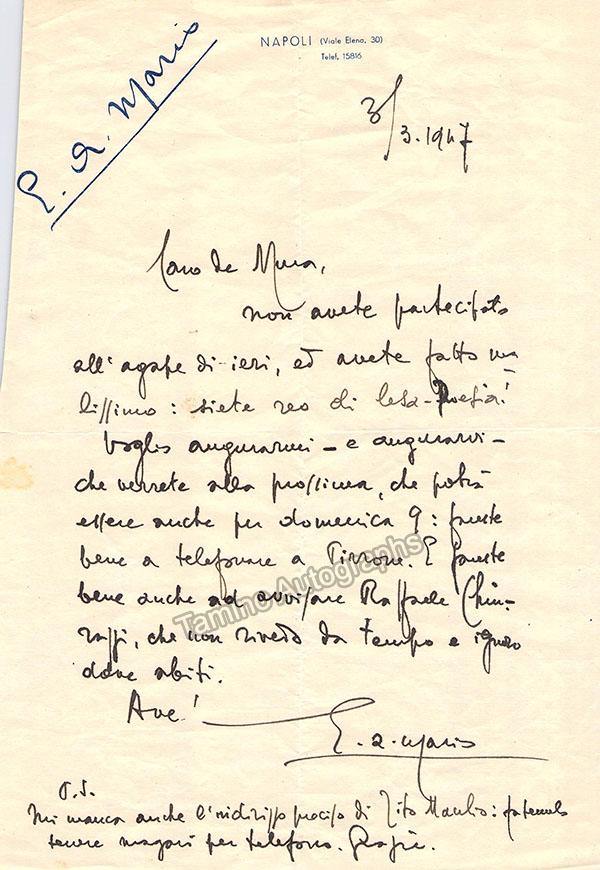 E. A. Mario
NAPOLI (Viale Elena, 30)
Telef. 15816
3/3.1947
Caro de Mura,
non avete partecipato
all'agape di ieri, ed avete fatto ma
lissimo: siete reo di lesa-Poesia!
Voglio augurarmi - e augurarvi -
che verrete alla prossima, che potrà
essere anche per domenica 9: fareste
bene a telefonare a Tirrone. E fareste
bene anche ad avvisare Raffaele Chiu-
razzi, che non rivedo da tempo e ignoro
dove abiti.
Ave!
E. A. Mario
P.S.
Mi manca anche l'indirizzo preciso di Tito Manlio: fatemelo
tenere magari per telefono. Grazie.
Tamino Autographs